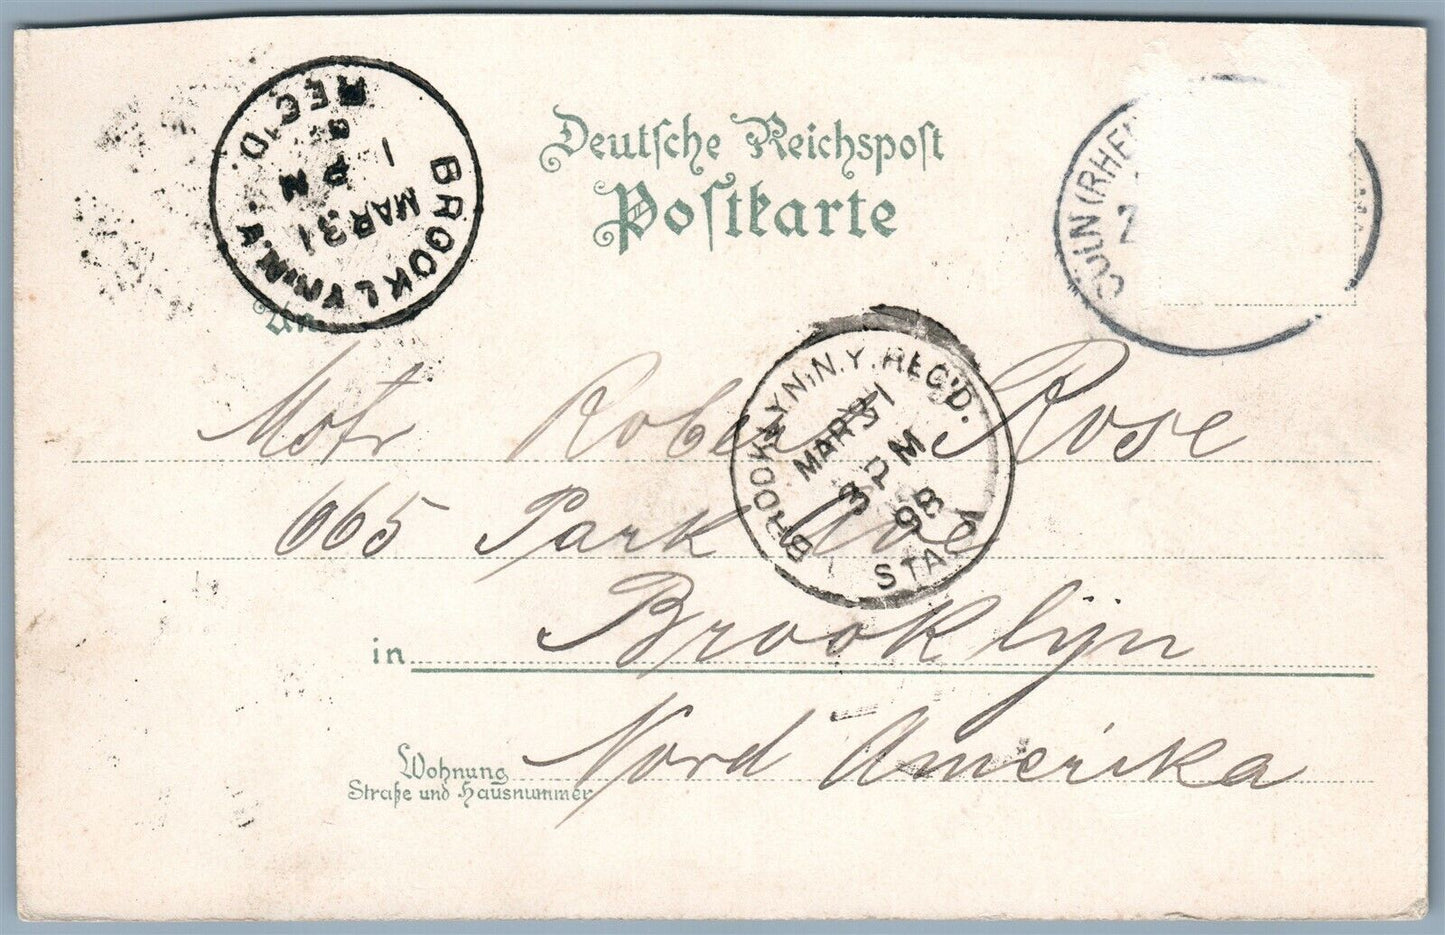 Deutsche Reichspost
Postkarte
BROOKLYN, N.Y.
REC'D.
MAR 31
1
CÖLN (RHEIN
An
Mstr Robert Rose
665 Park Ave
BROOKLYN, N.Y. REC'D.
MAR 31
3 PM
98
STA.
in Brooklijn
Nord Amerika
Wohnung
Straße und Hausnummer